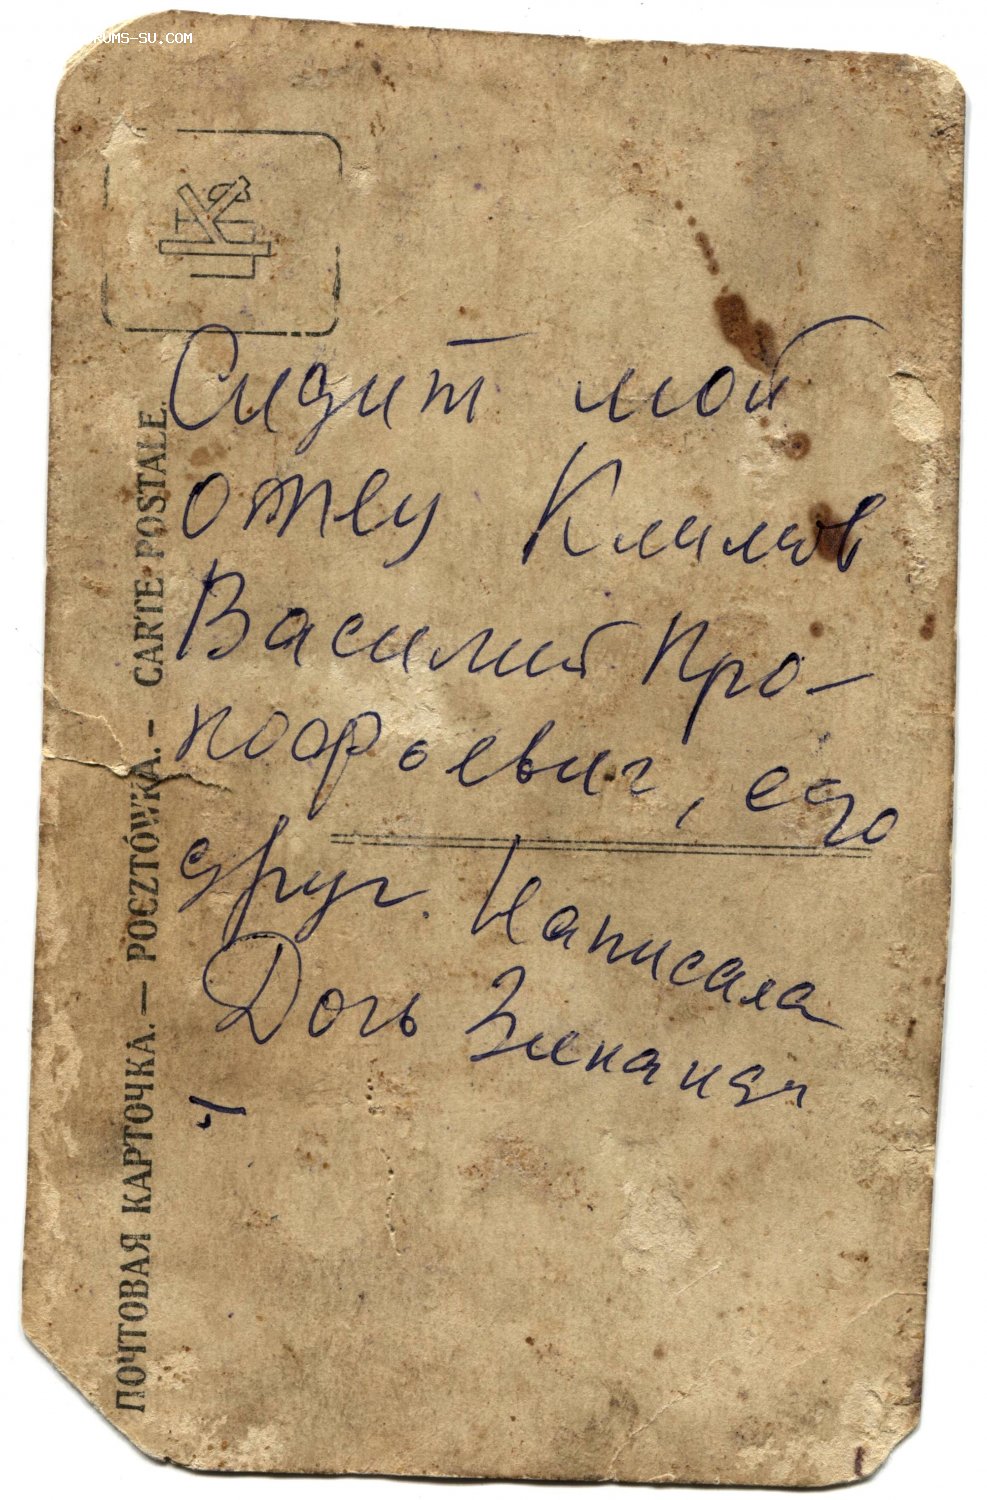 RUMS-SU.COM
ПОЧТОВАЯ КАРТОЧКА. — POCZTÓWKA. – CARTE POSTALE.
Сидит мой
отец Климов
Василий Про-
кофьевич, его
друг. Написала
Дочь Зинаида